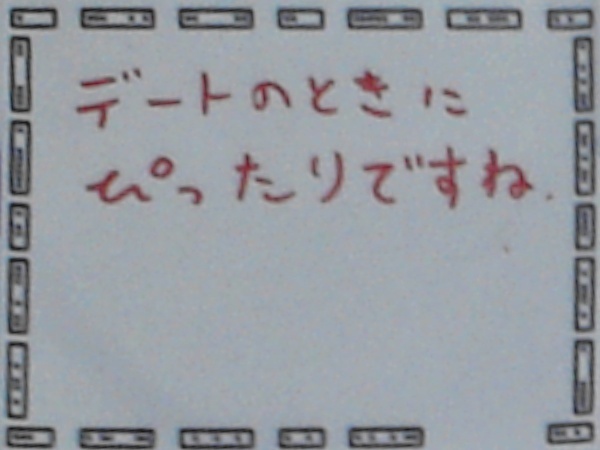 デートのときに
ぴったりですね.